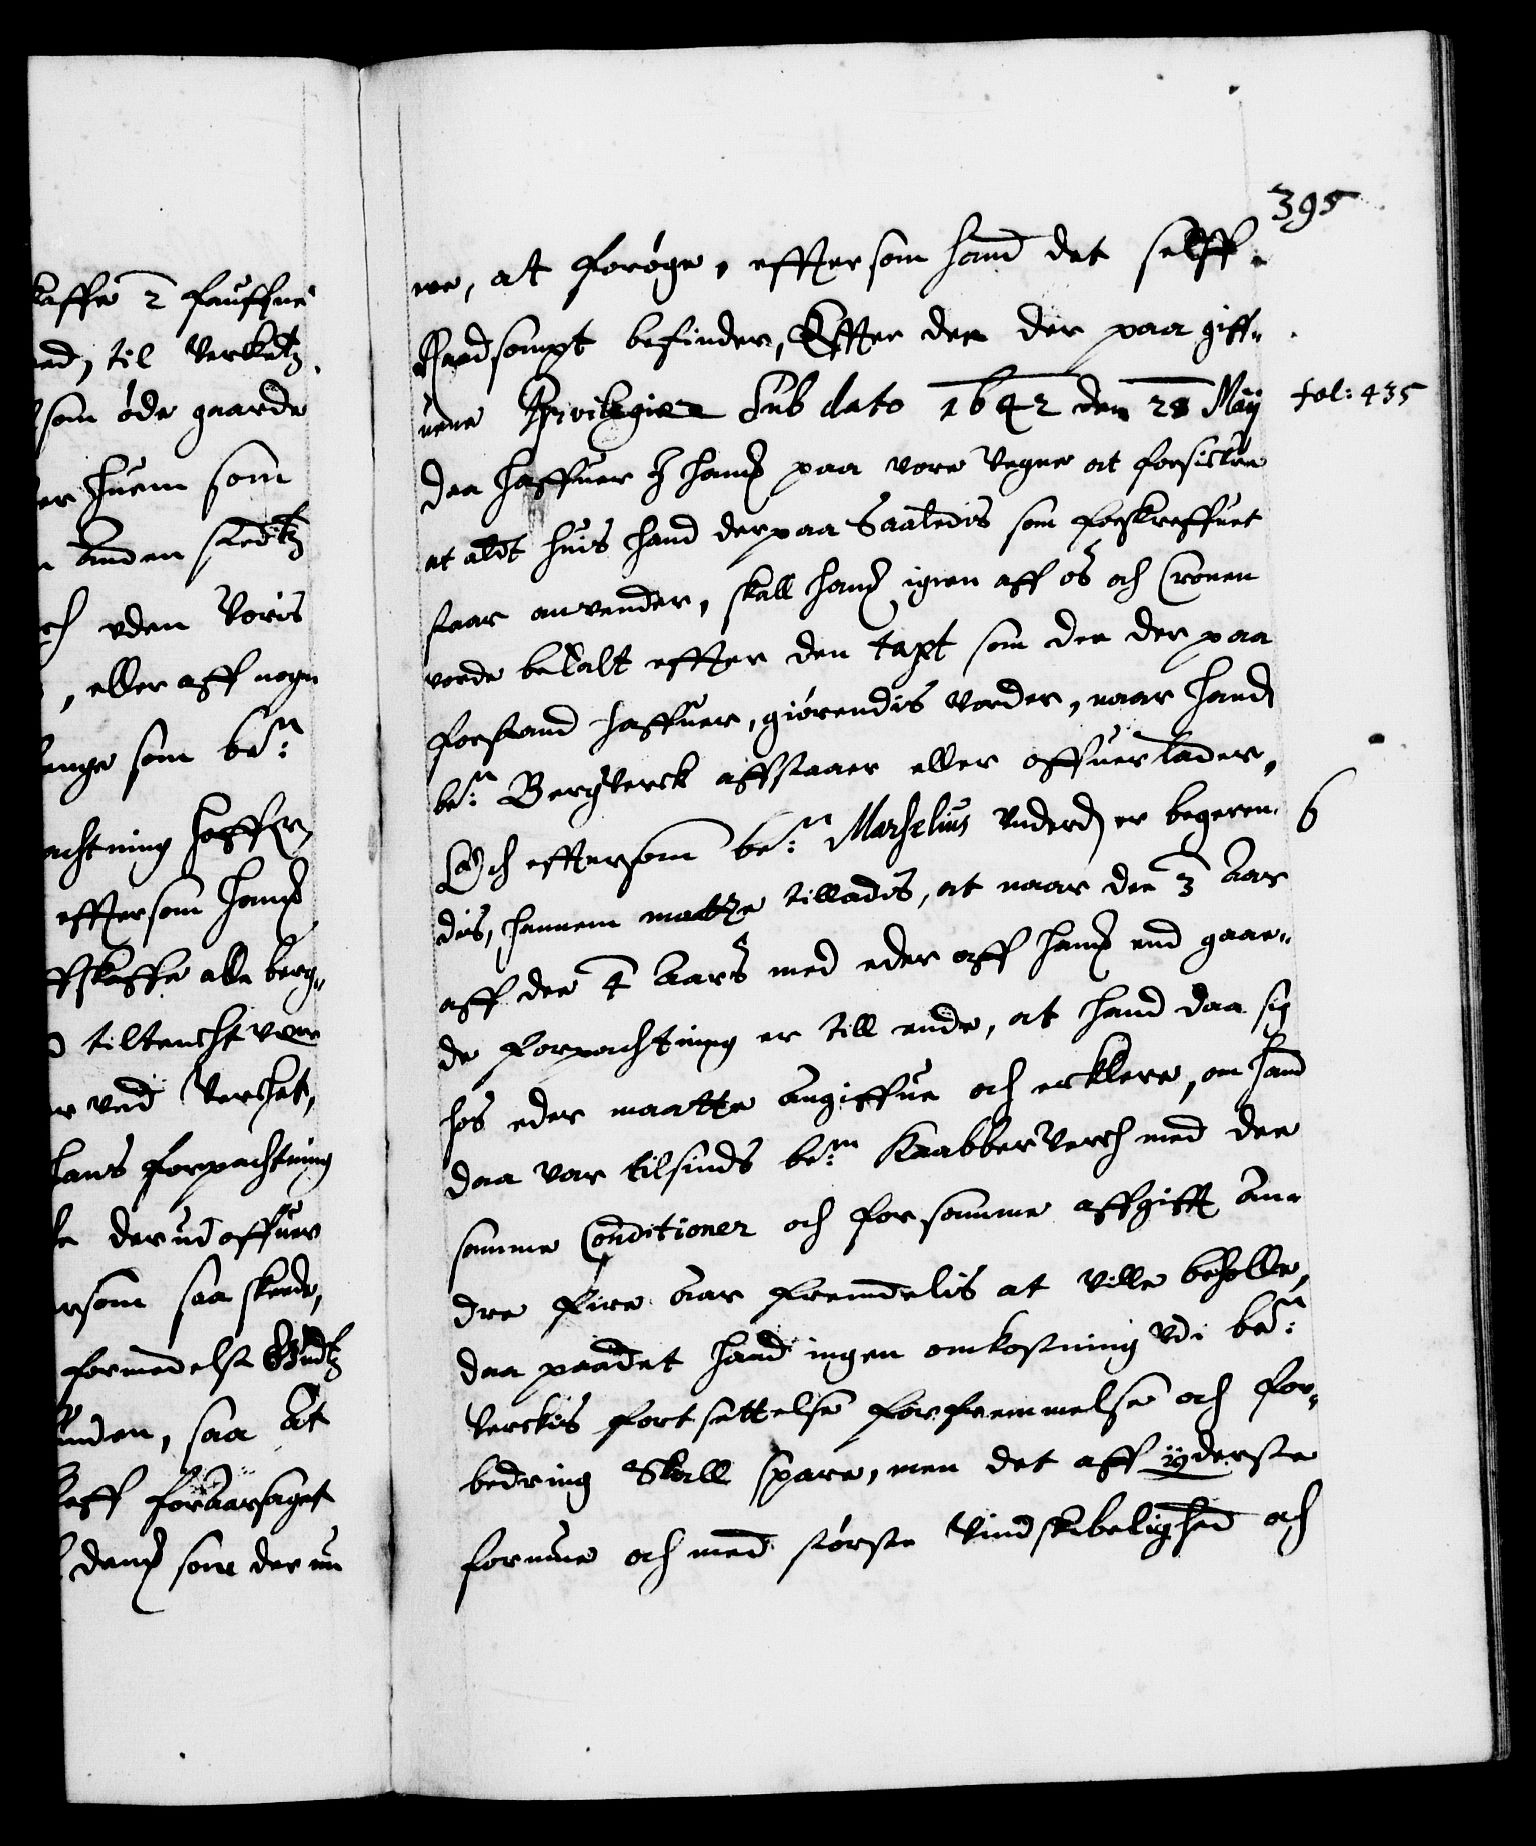 395
re, at forøge, effter som hand det selff
Raadsompt befinder, Effter de der paa giff-
uene Privilegier Sub dato 1642 den 28 Maij
fol: 435
daa haffuer I hans paa vore Vegne at forsickre
at aldt huis hand derpaa Saaledis som forskreffuet
staar anvender, skall hans igien aff os och Cronen
vorde betalt effter den taxt som de der paa
forstand haffuer, giørendis vorder, naar hand
be:te Bergverck affstaaer eller offuerlader,
Och effttersom be:te Marselius Vnderd: er begeren-
6
dis, hannem matte tilladis, at naar de 3 Aar
aff de 4 Aars med eder aff hans end gaae-
de forpachtning er till ende, at hand daa sig
hos eder maatte angiffue och erklere, om hand
daa var tilsinds be:te Kaabberverch med de
samme Conditioner och for samme affgifft an-
dre fire Aar fremdelis at ville beholde,
daa paa det hand ingen omkostning vdi be:te
Verckis fortsettelse forfremmelse och for-
bedring Skall spare, men det aff yderste
formue och med største Vindskibelighed och
kaffe 2 stauffne
ed, til Verketz
som øde gaarde
er huem som
anden stedtz
ch vden Voris
, eller aff nogn
enge som be:te
achtning haffr
effttersom hans
ffskaffe alle berg-
tiltencht vere
r ved Verchet,
hans forpachtning
derud offuer
rsom saa skeede,
formedelst Gudtz
unden, saa At
eff foraarsaget
dens som der un